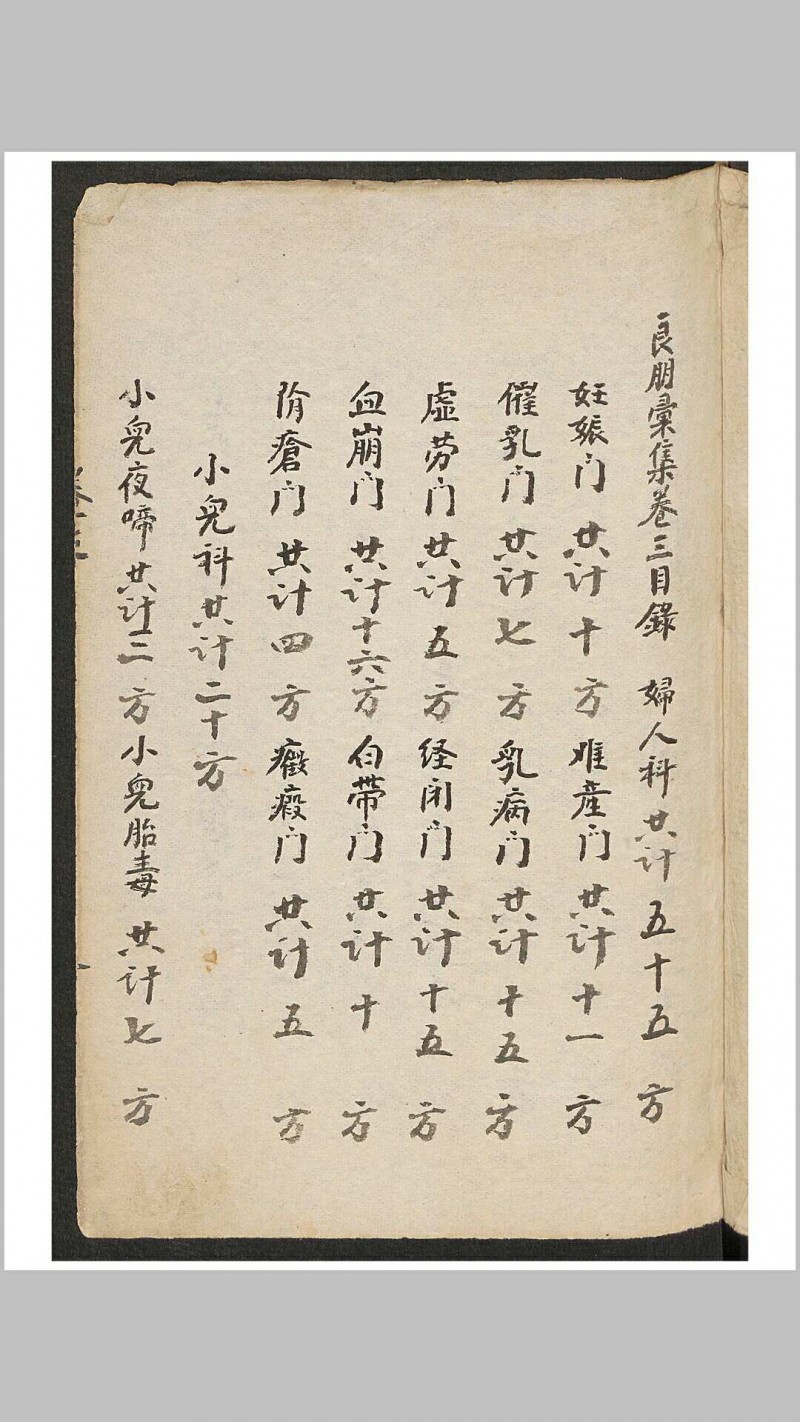 良朋彙集卷三目錄 婦人科共计五十五方
妊娠门共计十方 难產门共计十一方
催乳门共计七方 乳病门共计十五方
虚劳门共计五方 经闭门共计十五方
血崩门共计十六方 白帶门共计十方
阴瘡门共计四方 癥瘕门共计五方
小兒科共计二十方
小兒夜啼共计二方 小兒胎毒共计七方